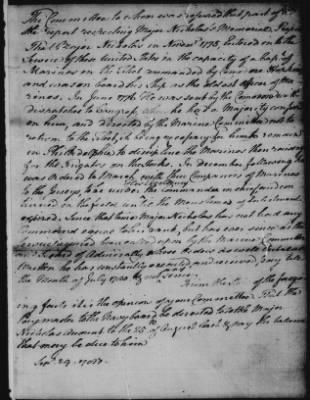 The Committee to whom was referred that part of
the report respecting Major Nicholas's Memorial, Report
That Major Nicholas in Novemr 1775, Entered in the
Service of these united States in the capacity of a Capt. of
Marines on the Ship commanded by Commodore Hopkins
and was on board this Ship as the eldest officer of Ma
rines. In June 1776 He was sent by the Commodore with
dispatches to Congress, when he had a Majority conferr'd
on him, and directed by the Marine Committee not to
return to the Ship, it being necessary for him to remain
in Philadelphia to discipline the Marines then raising
for the frigates on the Stocks. In December following he
was Ordered to March with three Companies of Marines
to the Jerseys, to be under the command of
his Excellency the commander in chief and con
tinued in the field until the Mens times of Enlistment
expired. Since that time Major Nicholas has not had any
Command agreeable to his rank, but has ever since
services required been called upon by the Marine Committee
and Board of Admiralty
he has constantly executed, and received pay till
the Month of July 1780
From the of the forego
ing facts it is the opinion of your Committee That the
Pay master to the Navy board be directed to settle Major
Nicholas's Account to the 25th of August last & pay the balance
that may be due to him
Sepr. 29. 1781.